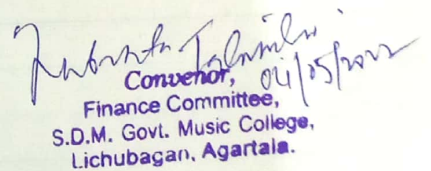 04/05/2022
Convenor,
Finance Committee,
S.D.M. Govt. Music College,
Lichubagan, Agartala.